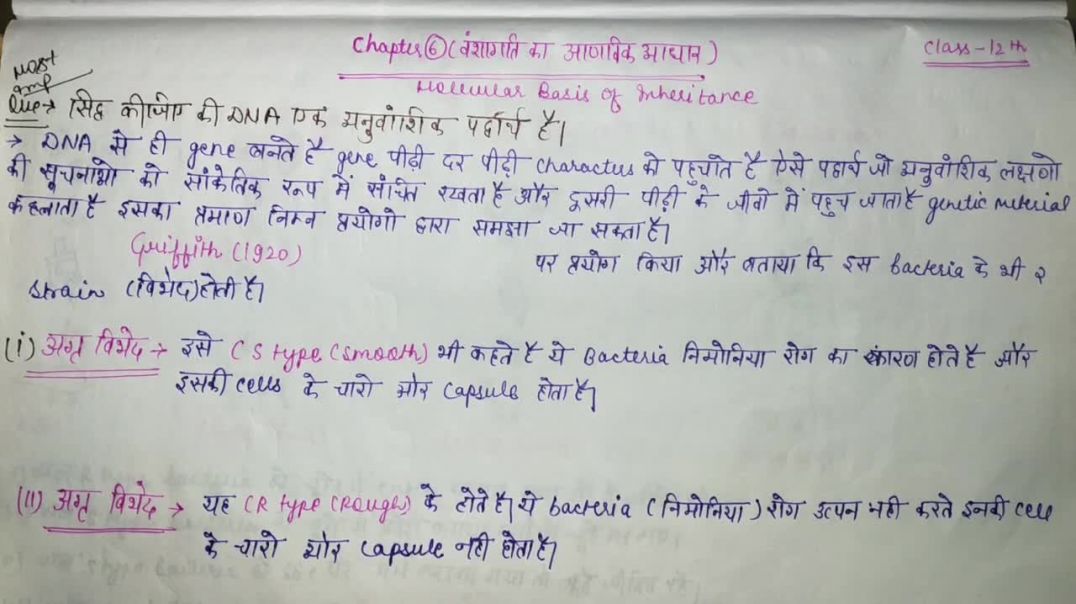 Chapter ⑥ (वंशागति का आणविक आधार)
Class-12th
Molecular Basis of Inheritance
Most
Imp
Que→ सिद्ध कीजिए की DNA एक अनुवांशिक पदार्थ है।
→ DNA से ही gene बनते है gene पीढ़ी दर पीढ़ी characters को पहुचाते है ऐसे पदार्थ जो अनुवांशिक लक्षणो
की सूचनाओ को सांकेतिक रूप में संचित रखता है और दुसरी पीढ़ी के जीवो में पहुच जाता है genetic meterial
कहलाता है इसका प्रमाण निम्न प्रयोगो द्वारा समझा जा सकता है।
Griffith (1920) पर प्रयोग किया और बताया कि इस bacteria के भी २
strain (विभेद) होती है।
(i) अग्र विभेद → इसे (S type (smooth) भी कहते है ये Bacteria निमोनिया रोग का कारण होते है और
इसकी cells के चारो ओर capsule होता है।
(II) अग्र विभेद → यह (R type (Rough) के होते है। ये bacteria (निमोनिया) रोग उत्पन नही करते इनकी cell
के चारो ओर capsule नही होता है।